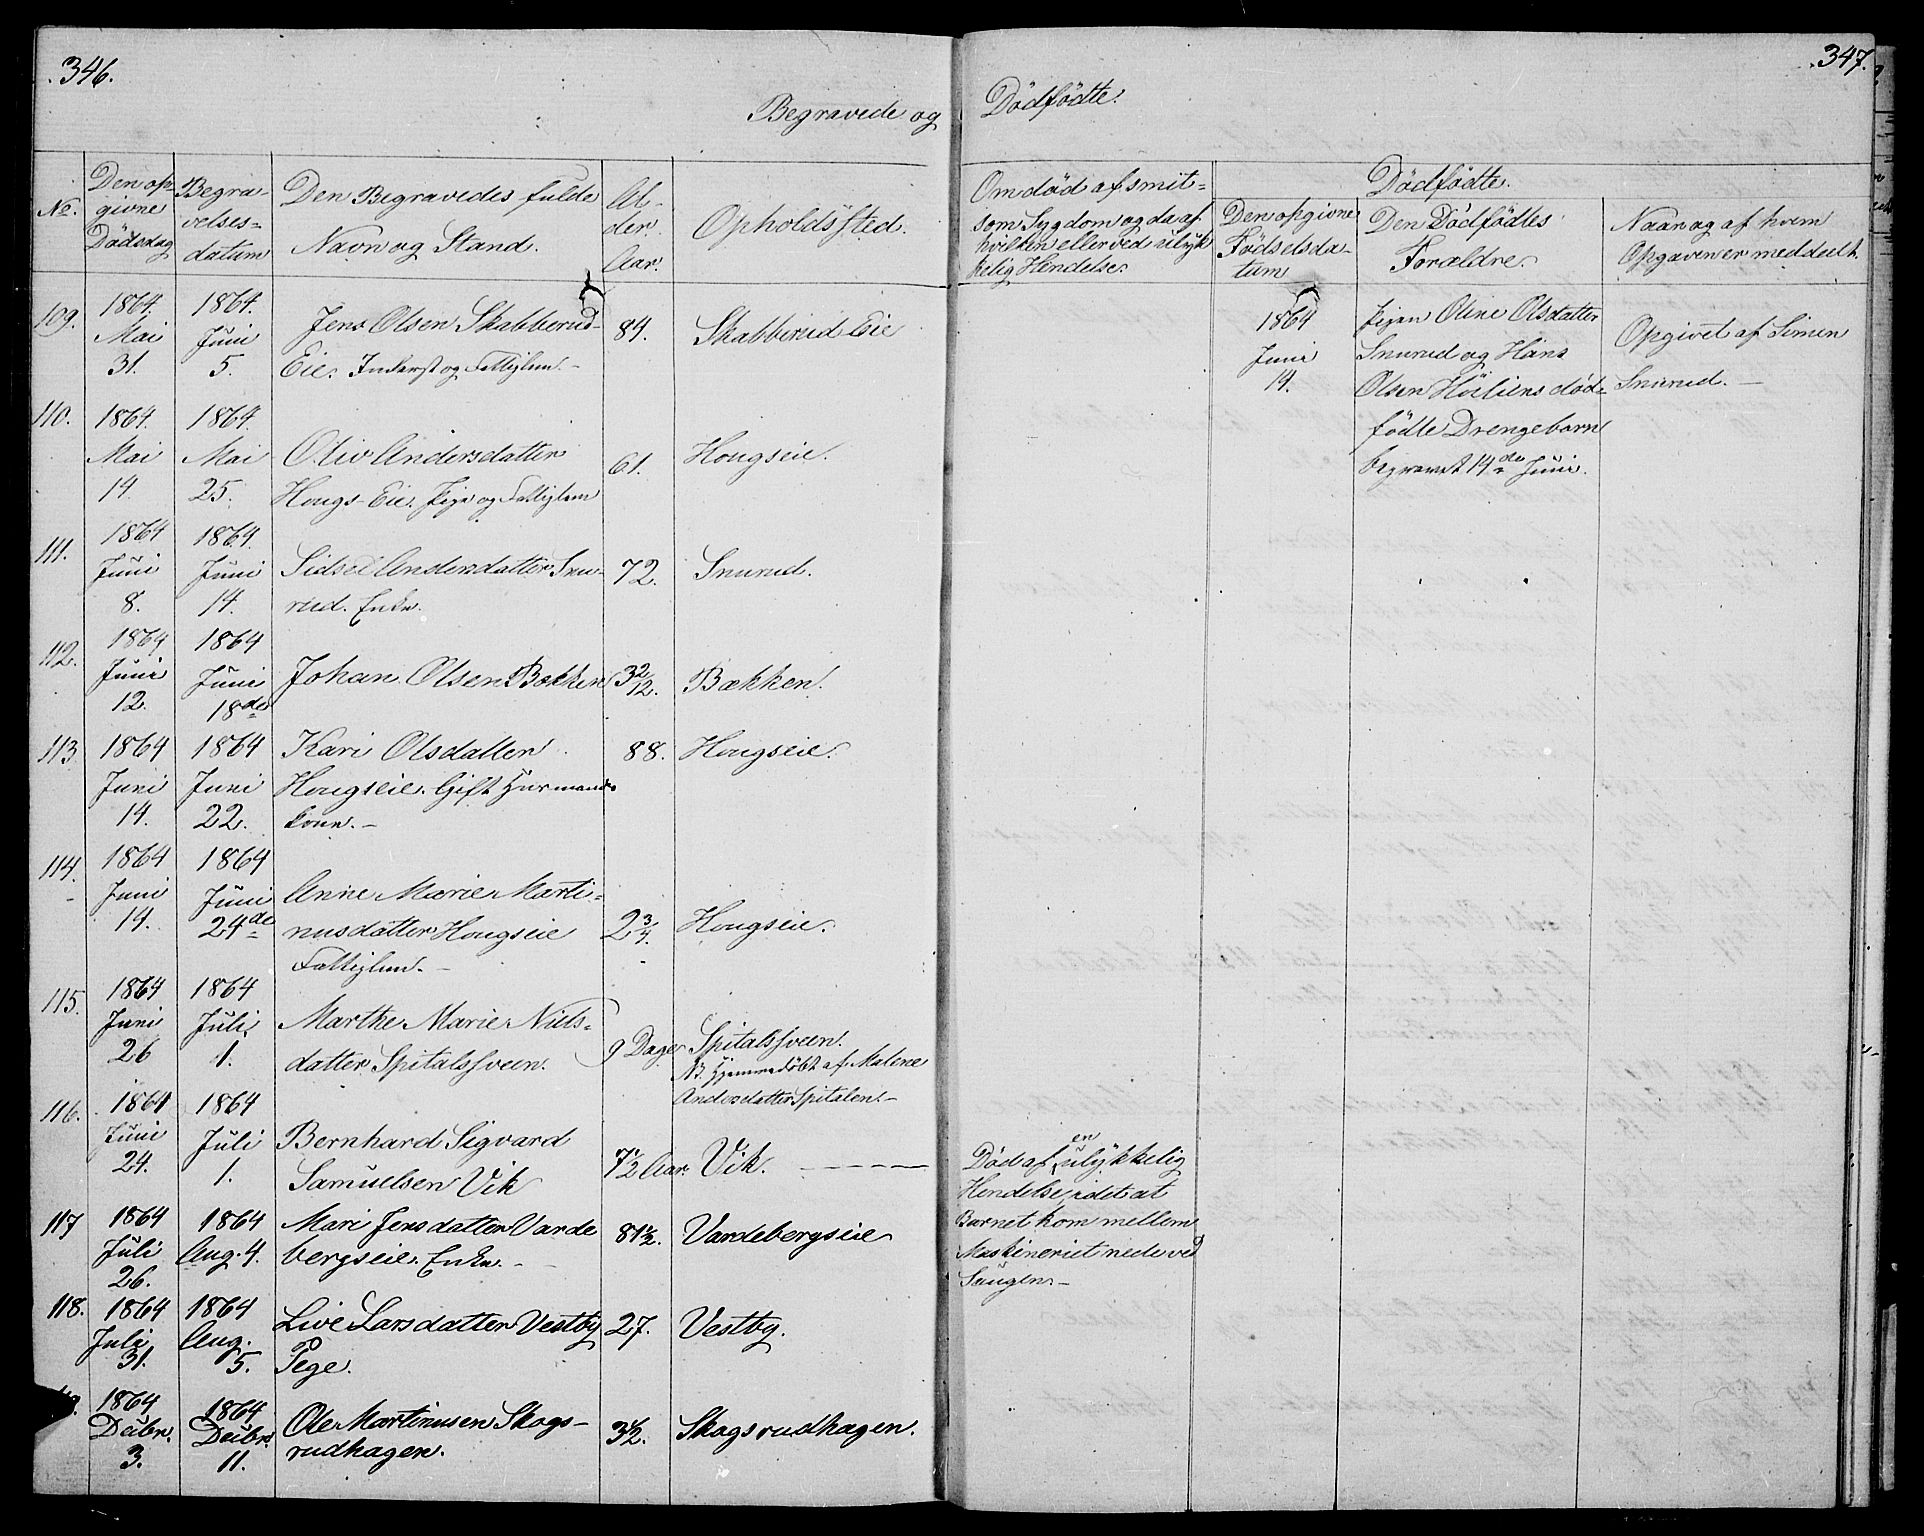 346.
Begravede og
No.
Den op-
givne
Dødsdag
Begra-
velses-
datum
Den Begravedes fulde
Navn og Stand.
Al-
der.
Aar.
Opholdssted.
109.
1864.
Mai
31.
1864.
Juni
5.
Jens Olsen Skabberud-
Eie. Inderst og Fattiglem. -
84.
Skabberud Eie
110.
1864.
Mai
19.
1864.
Mai
25.
Oliv Andersdatter
Hougs-Eie. Pige og Fattiglem
61.
Hougseie.
111.
1864
Juni
8.
1864.
Juni
14.
Sidsel Andersdatter Snu-
rud. Enke.
72.
Snurud.
112.
1864
Juni
12.
1864
Juni
18de
Johan Olsen Bækken
3 2/12.
Bækken.
113.
1864
Juni
14.
1864
Juni
22.
Kari Olsdatter
Hougseie. Gift Huusmands
kone. -
88.
Hougseie.
114.
1864
Juni
14.
1864
Juni
24de
Anne Marie Marti-
nusdatter Hougseie
Fattiglem. -
2 3/4.
Hougseie.
115.
1864
Juni
26
1864
Juli
1.
Marthe Marie Niels-
datter Spitalssveen.
9 Dage
Spitalssveen.
NB. Hjemmedöbt af Malene
Andersdatter Spitalen. -
116.
1864
Juni
24.
1864
Juli
1.
Bernhard Sigvard
Samuelsen Vik
7 1/2 Aar.
Vik. - - - - -
117
1864
Juli
26.
1864
Aug. 4.
Mari Jensdatter Varde
bergseie. Enke. -
81 1/2.
Vardebergseie
118.
1864
Juli
31.
1864
Aug.
5.
Live Larsdatter Vestby
Pege.
27.
Vestby.
1864
Decbr.
3.
1864
Decbr.
11.
Ole Martinusen Skogs-
rudhagen.
3 1/2.
Skogsrudhagen.
347.
Dödfödte.
Om död af smit-
som Sygdom og da af
hvilken eller ved ulyk
kelig Hendelse.
Dödfödte.
Den opgivne
Födselsda-
tum
Den Dödfödtes
Forældre.
Naar og af hvem
Opgaven er meddeelt.
1864
Juni
14.
Pigen Oline Olsdatter
Snurud og Hans
Olsen Höiliens död-
födte Drengebarn
begravet 14de Juni.
Opgivet af Simen
Snurud. -
Död af en ulykkelig
Hendelse, idet at
Barnet kom mellem
Maskineriet nede ved
Saugen. -